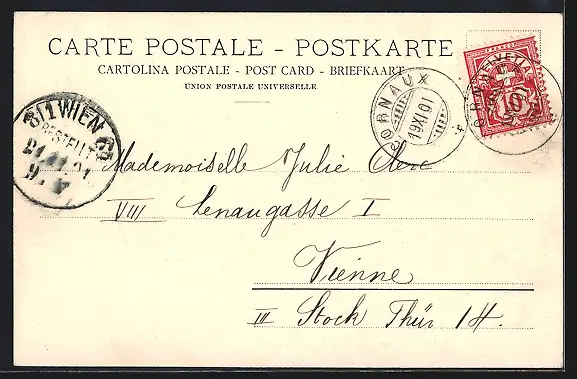 CARTE POSTALE - POSTKARTE
CARTOLINA POSTALE - POST CARD - BRIEFKAART
UNION POSTALE UNIVERSELLE.
CORNAUX
19XI01
HELVETIA
10
8/1 WIEN
BESTELLT
Mademoiselle Julie Clerc
VIII Lenaugasse I
Vienne
III Stock Thür 14.